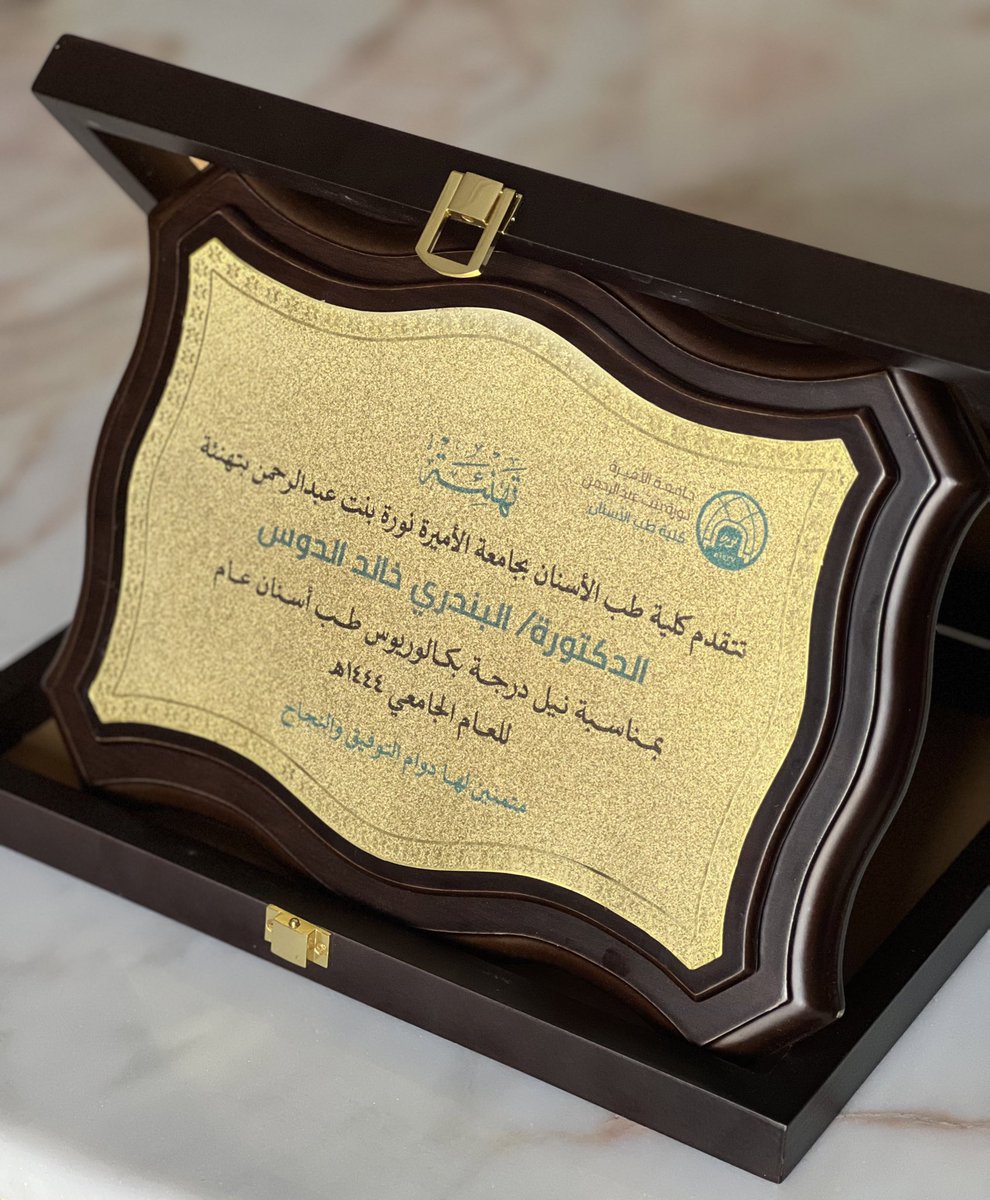 جامعة الأميرة
نورة بنت عبدالرحمن
كلية طب الأسنان
تهنئة
تتقدم كلية طب الأسنان بجامعة الأميرة نورة بنت عبدالرحمن بتهنئة
الدكتورة/ البندري خالد الدوس
بمناسبة نيل درجة بكالوريوس طب أسنان عام
للعام الجامعي ١٤٤٤هـ
متمنين لها دوام التوفيق والنجاح